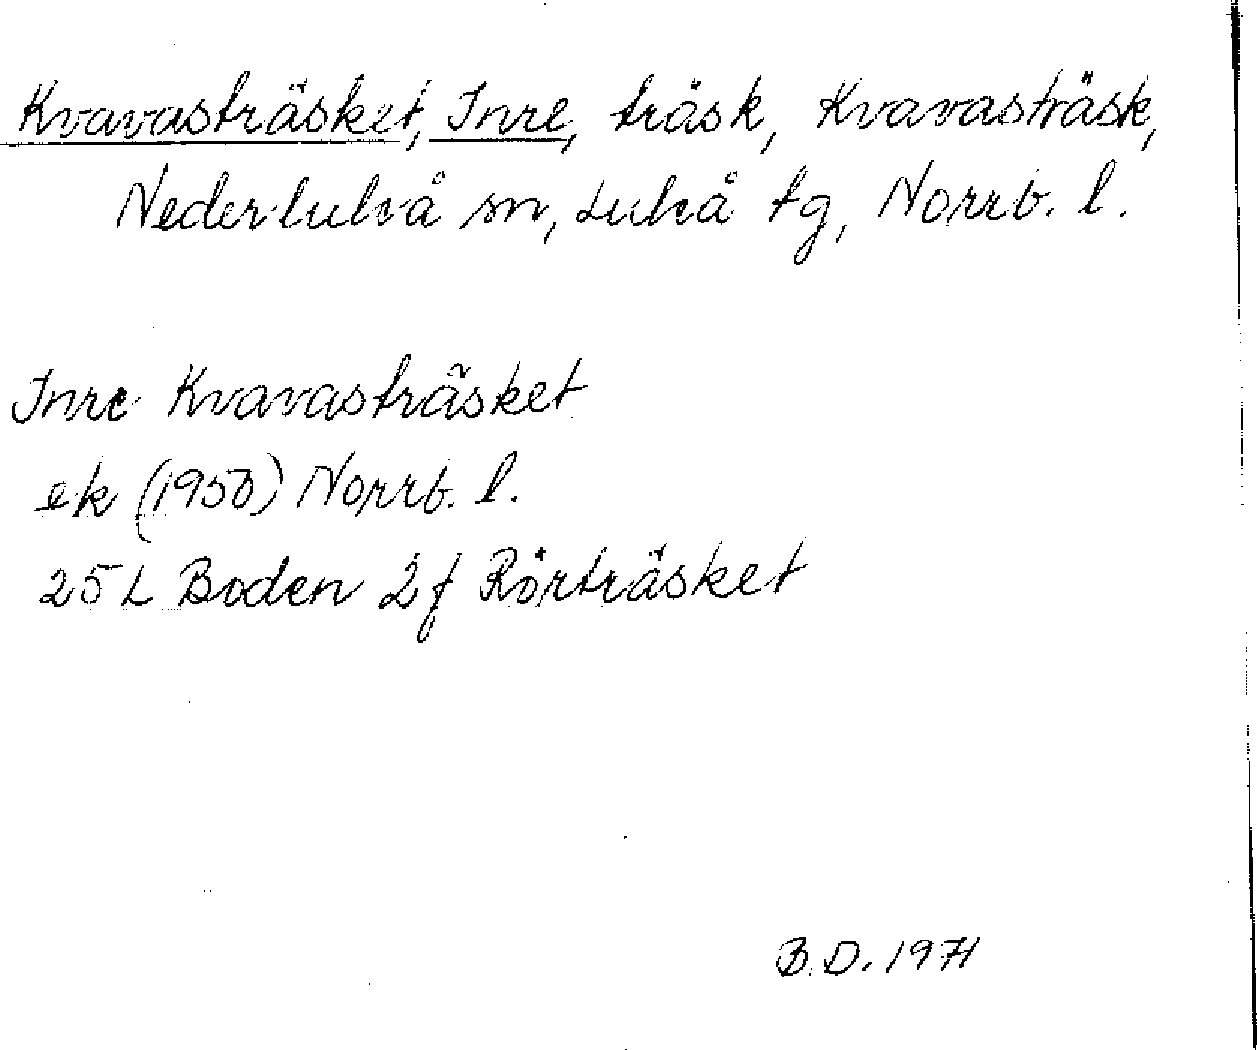 Kvavasträsket, Inre, träsk, Kvavasträsk,
Nederluleå sn, Luleå tg, Norrb. l.
Inre Kvavasträsket
ek (1950) Norrb. l.
25 L Boden 2f Rörträsket
B.D. 1971